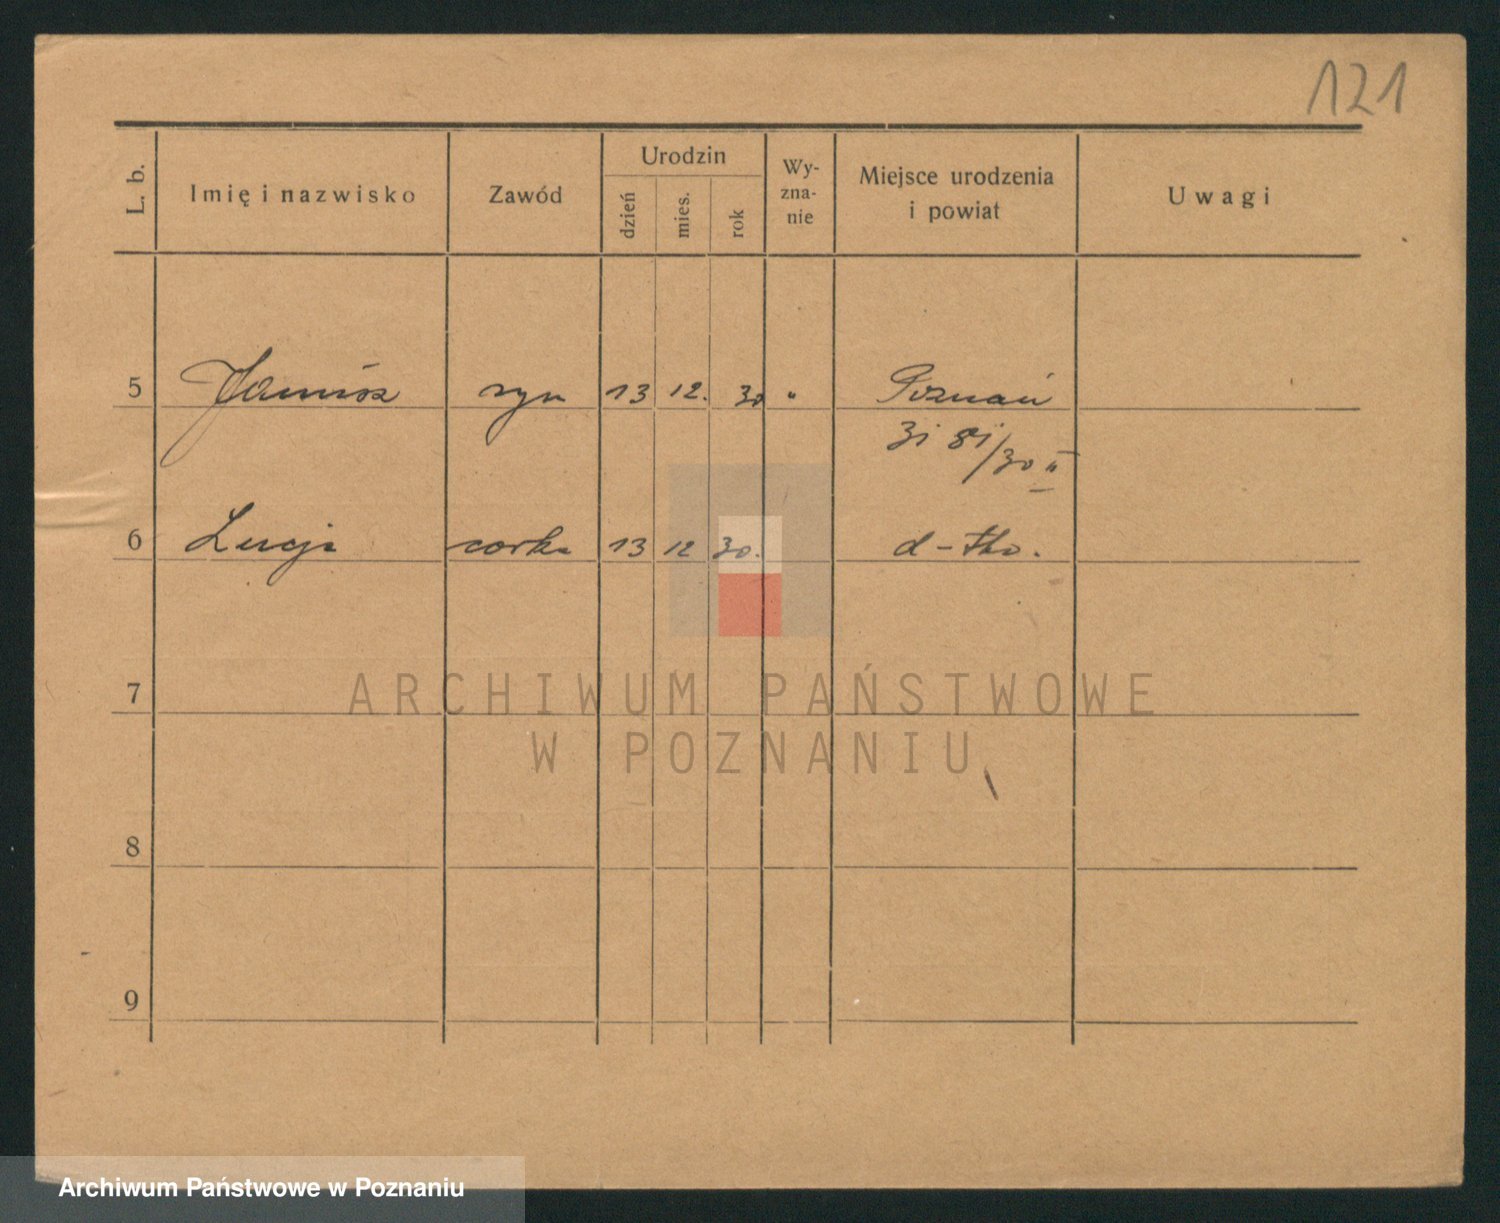 121
L. b.
Imię i nazwisko
Zawód
Urodzin
dzień
mies.
rok
Wy-
zna-
nie
Miejsce urodzenia
i powiat
Uwagi
5 syn 13 12. 30 " Poznań
6 Lucja corka 13 12 30. d-tto.
7
8
9
ARCHIWUM PAŃSTWOWE
W POZNANIU
Archiwum Państwowe w Poznaniu